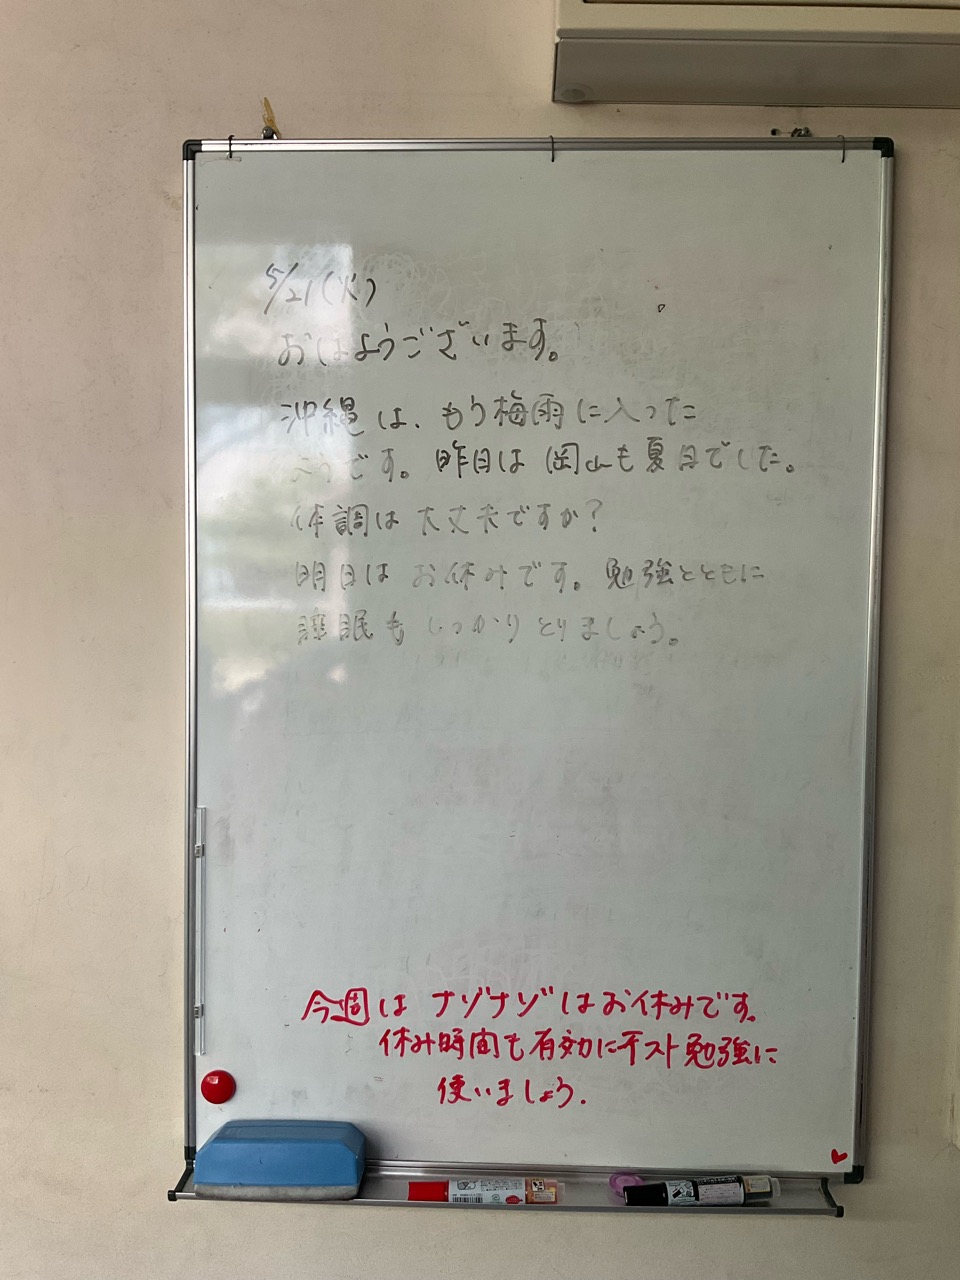 5/21(火)
おはようございます。
沖縄は、もう梅雨に入った
そうです。昨日は岡山も夏日でした。
体調は大丈夫ですか?
明日はお休みです。勉強とともに
睡眠もしっかりとりましょう。
今週はナゾナゾはお休みです。
休み時間も有効にテスト勉強に
使いましょう.